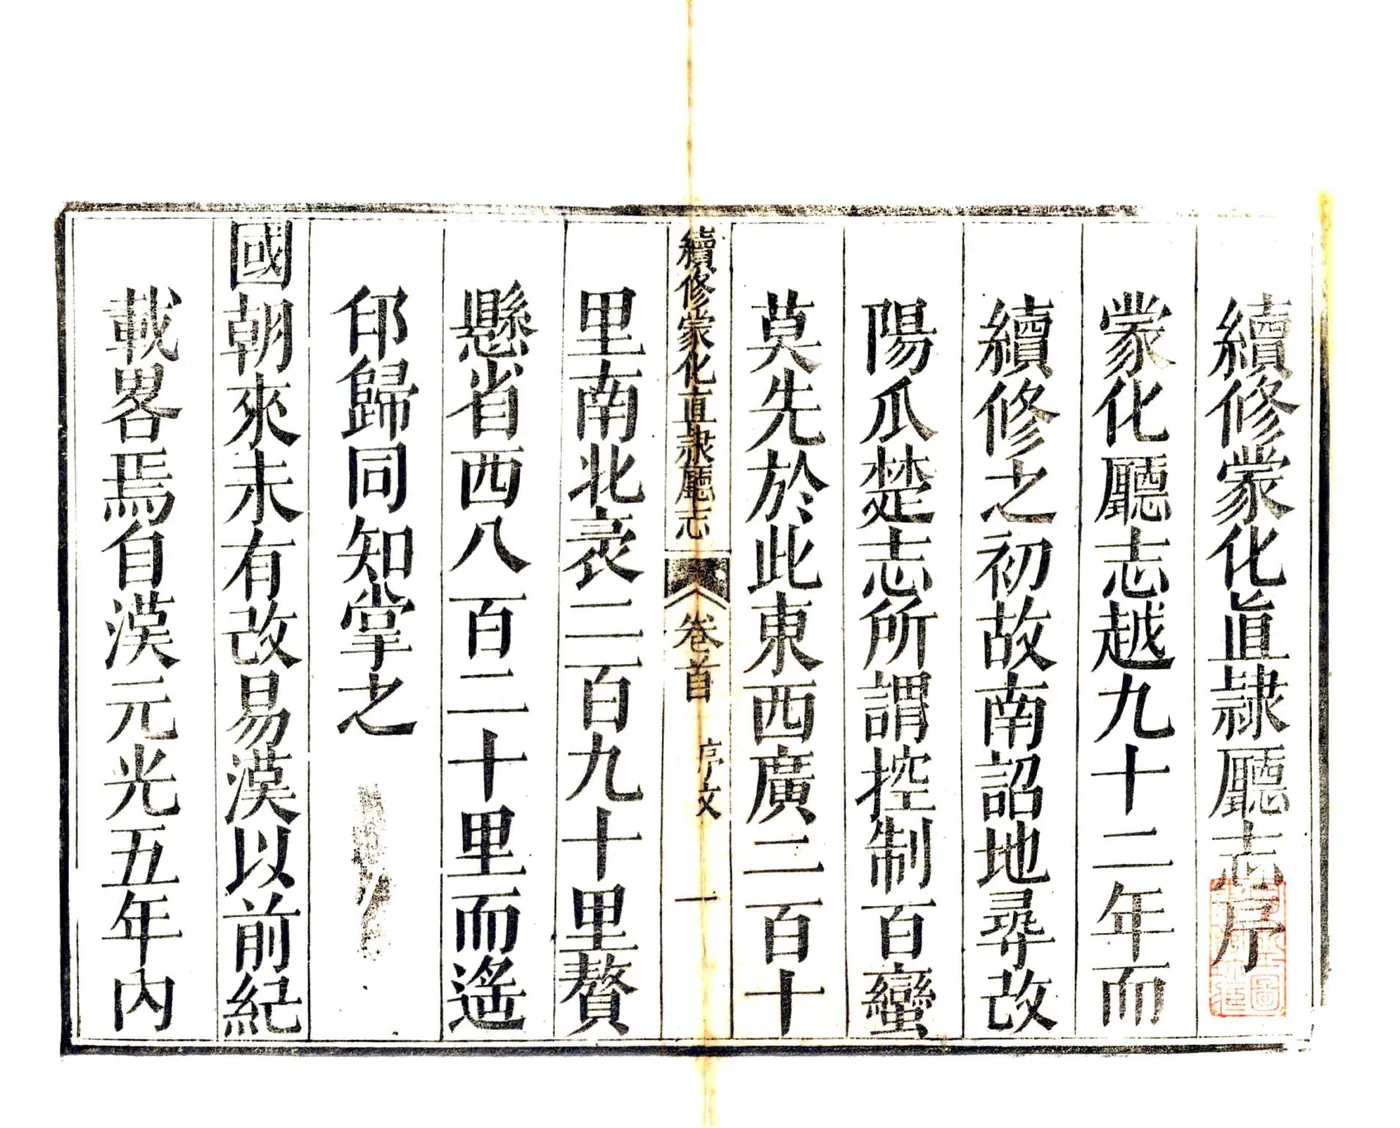 續修蒙化直隸廳志序
蒙化廳志越九十二年而
續修之初故南詔地尋改
陽瓜楚志所謂控制百蠻
莫先於此東西廣二百十
續修蒙化直隸廳志 卷首 序文 一
里南北袤二百九十里贅
懸省西八百二十里而遙
郍歸同知掌之
國朝來未有改易漢以前紀
載畧焉自漢元光五年內